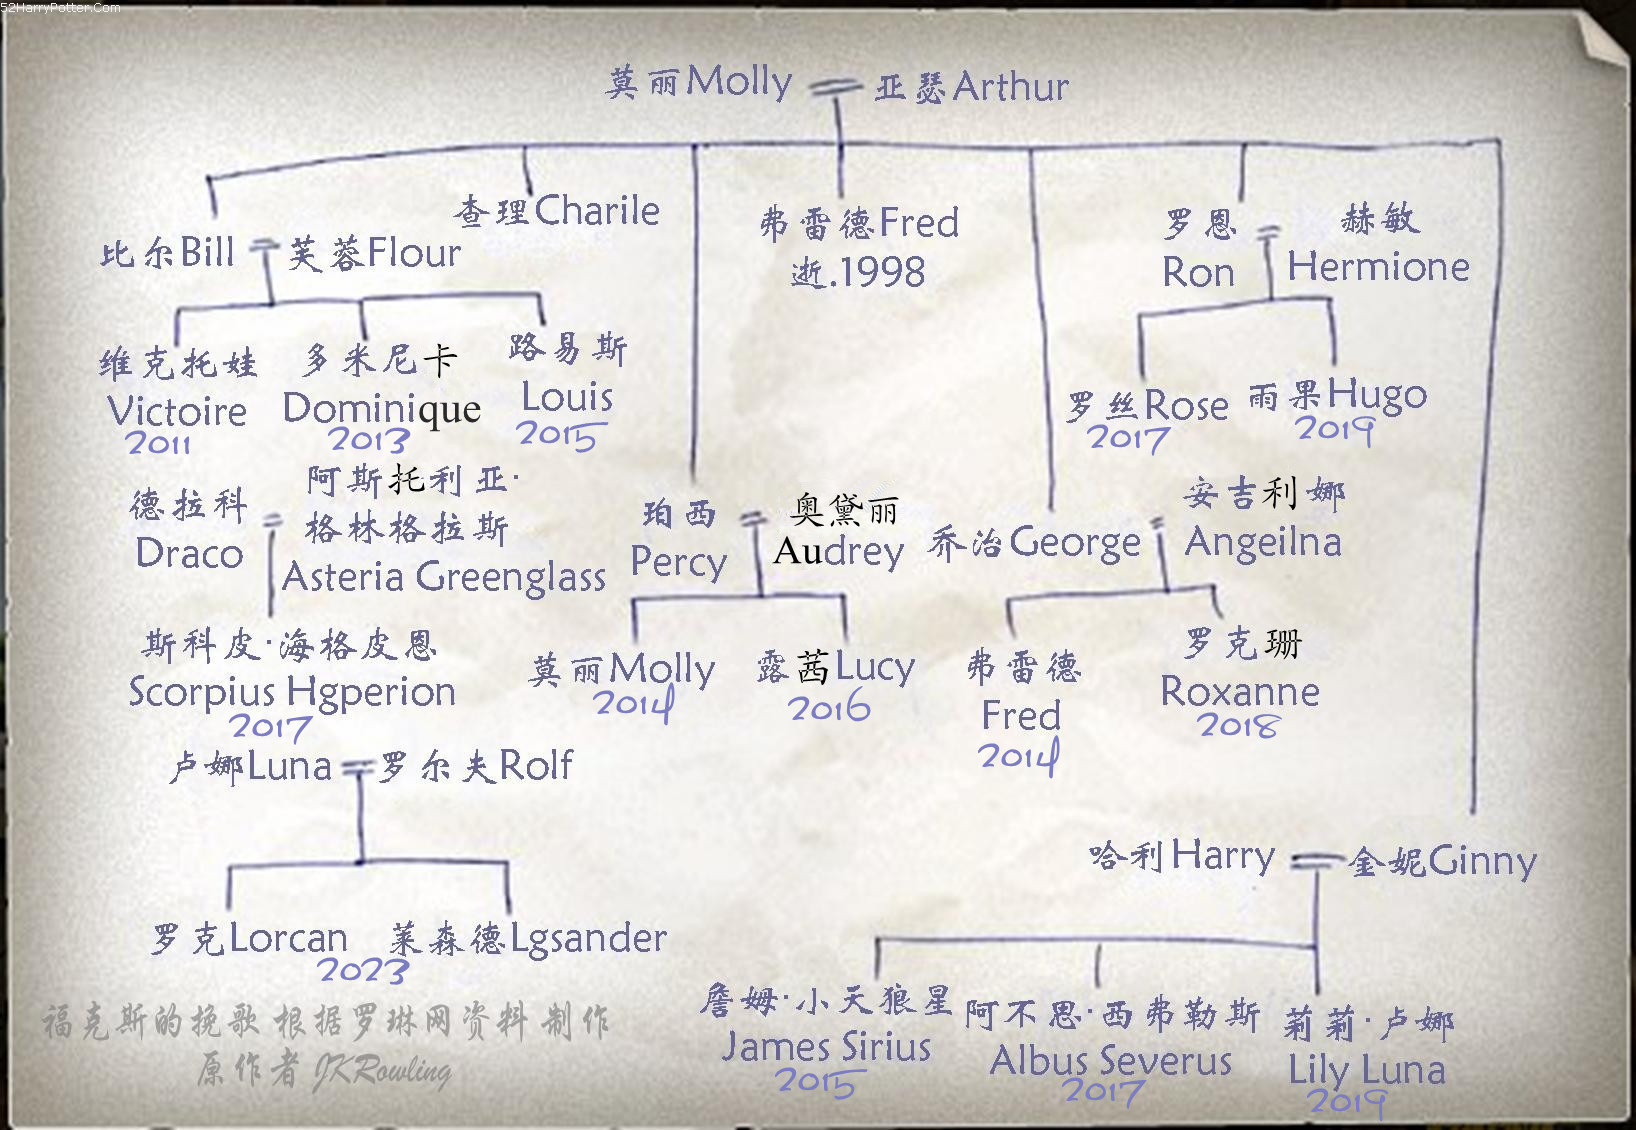 52HarryPotter.Com
莫丽Molly 亚瑟Arthur
查理Charile
比尔Bill 芙蓉Flour
弗雷德Fred
逝.1998
罗恩
Ron
赫敏
Hermione
维克托娃
Victoire
2011
多米尼卡
Dominique
2013
路易斯
Louis
2015
罗丝Rose
2017
雨果Hugo
2019
德拉科
Draco
阿斯托利亚·
格林格拉斯
Asteria Greenglass
珀西
Percy
奥黛丽
Audrey
乔治George
安吉利娜
Angeilna
斯科皮·海格皮恩
Scorpius Hgperion
2017
莫丽Molly
2014
露茜Lucy
2016
弗雷德
Fred
2014
罗克珊
Roxanne
2018
卢娜Luna 罗尔夫Rolf
哈利Harry 金妮Ginny
罗克Lorcan 莱森德Lgsander
2023
詹姆·小天狼星
James Sirius
2015
阿不思·西弗勒斯
Albus Severus
2017
莉莉·卢娜
Lily Luna
2019
福克斯的挽歌 根据罗琳网资料 制作
原作者 JKRowling